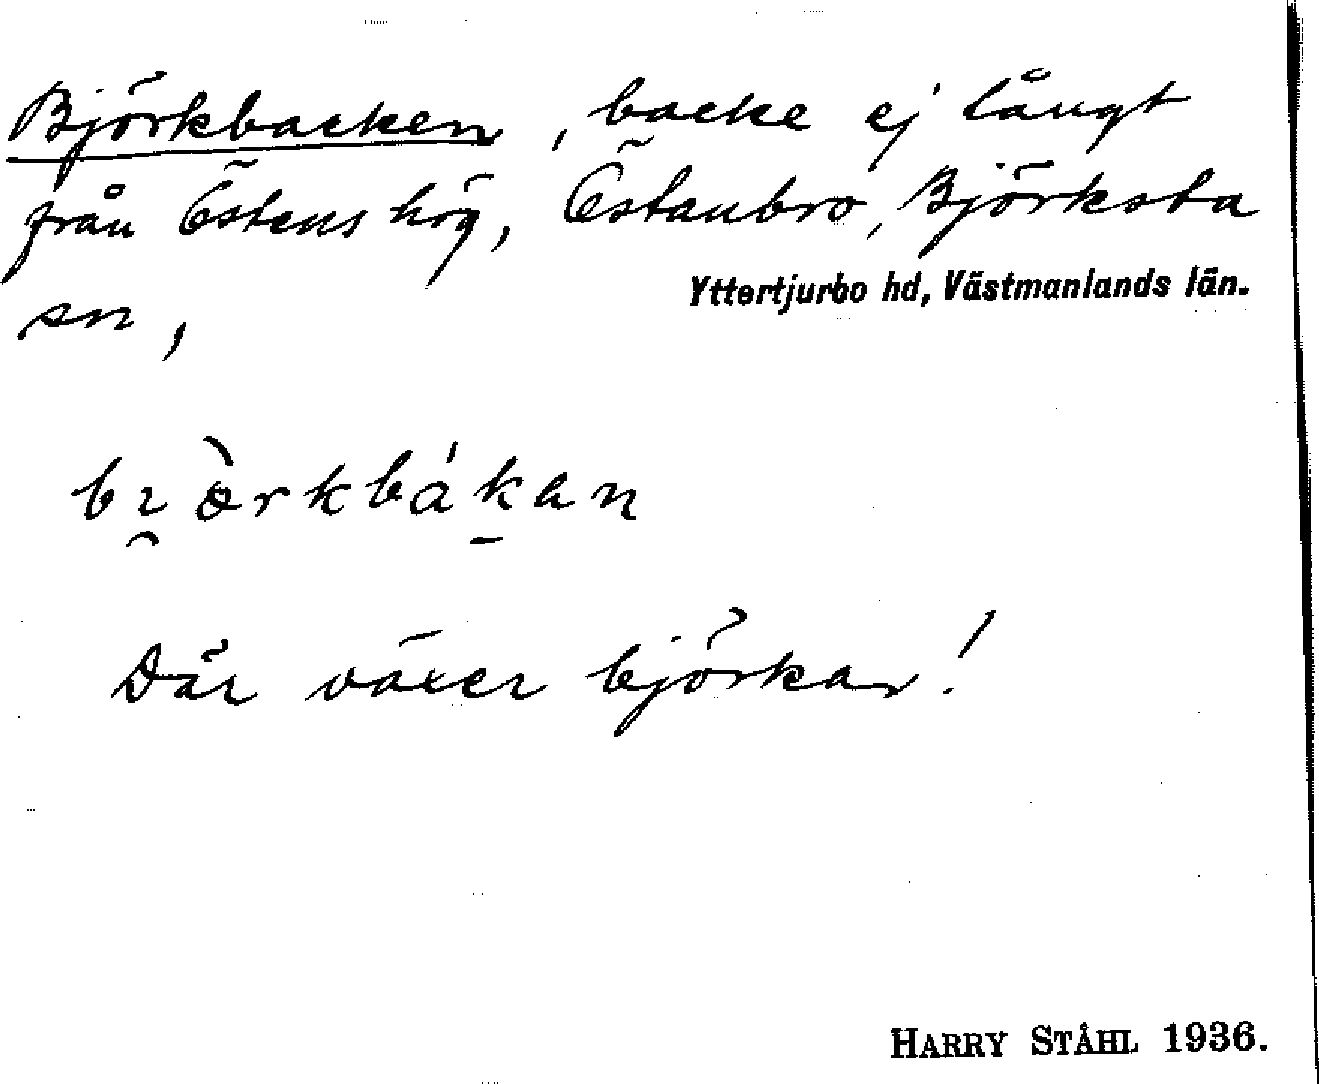 Björkbacken, backe ej långt
från Östens hög, Östanbro, Björksta
sn,
Yttertjurbo hd, Västmanlands län.
bɪ̯ɶ̀rkbák̠an
Där växer björkar!
HARRY STÅHL 1936.